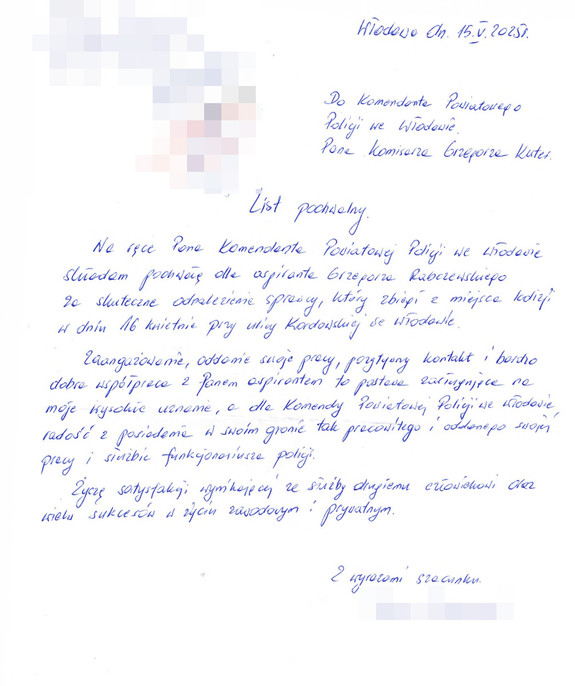 Włodawa dn. 15.V.2025r.
Do Komendanta Powiatowego
Policji we Włodawie.
Pana Komisarza Grzegorza Kuter.
List pochwalny.
Na ręce Pana Komendanta Powiatowej Policji we Włodawie
składam pochwałę dla aspiranta Grzegorza Rabczewskiego
za skuteczne odnalezienie sprawcy, który zbiegł z miejsca kolizji
w dniu 16 kwietnia przy ulicy we Włodawie.
Zaangażowanie, oddanie swojej pracy, pozytywny kontakt i bardzo
dobra współpraca z Panem aspirantem to postawa zasługująca na
moje wysokie uznanie, a dla Komendy Powiatowej Policji we Włodawie,
radość z posiadania w swoim gronie tak pracowitego i oddanego swojej
pracy i służbie funkcjonariusza policji.
Życzę satysfakcji wynikającej ze służby drugiemu człowiekowi oraz
wielu sukcesów w życiu zawodowym i prywatnym.
Z wyrazami szacunku